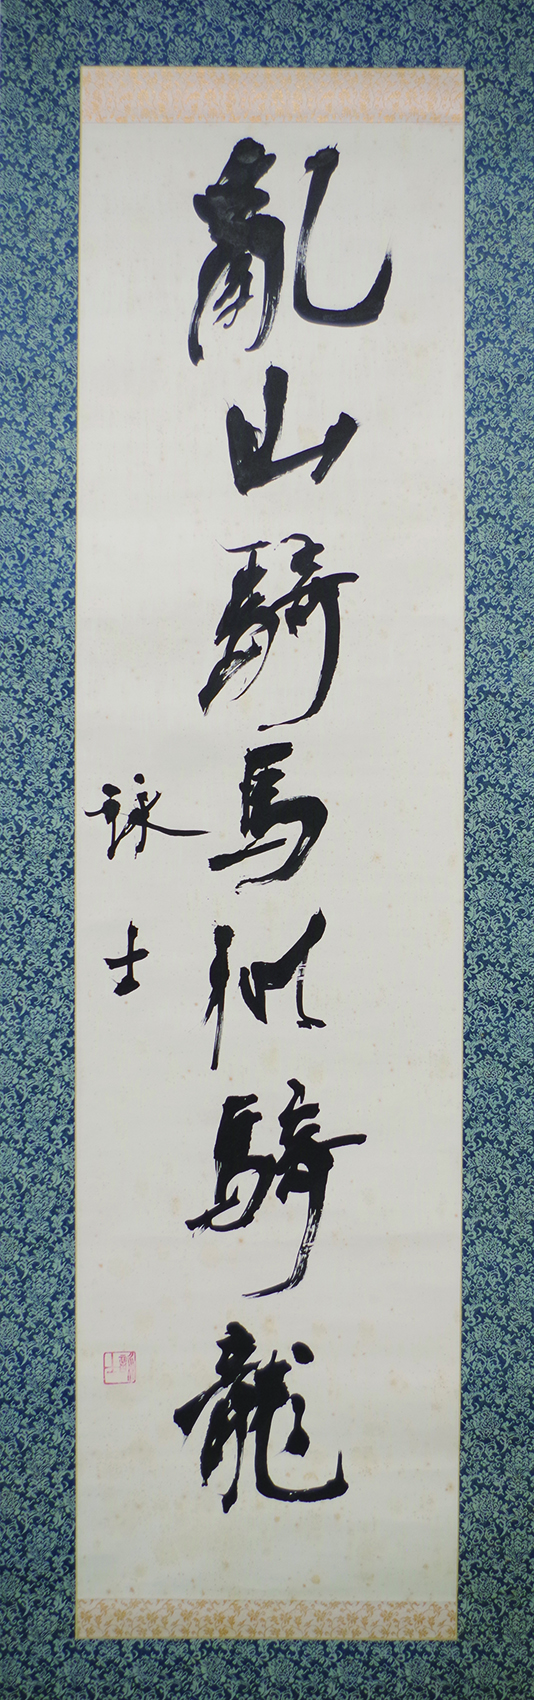 亂山騎馬似騎龍
詠士